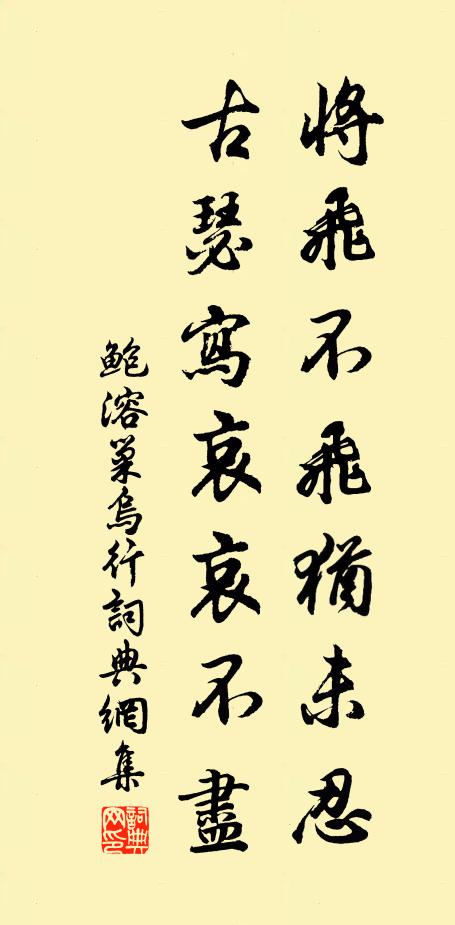 將飛不飛猶未忍
古瑟寫哀哀不盡
鮑溶巢烏行詞典網集
詞典网印